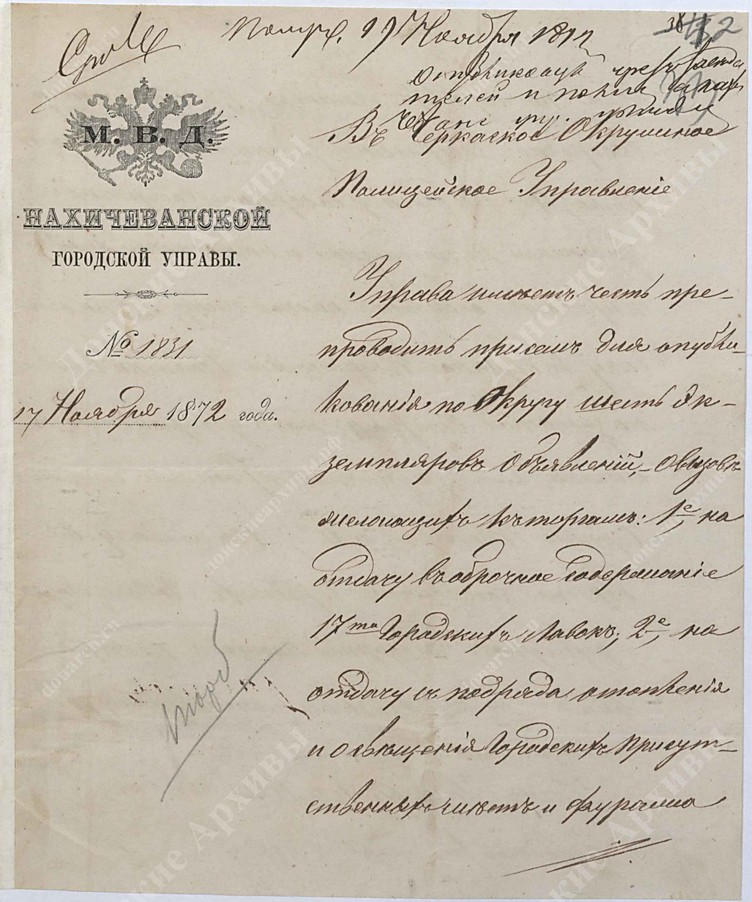 Получ. 19 Ноября 1872
38
132
М. В. Д.
НАХИЧЕВАНСКОЙ
ГОРОДСКОЙ УПРАВЫ.
№ 1831
17 Ноября 1872 года.
Въ Черкаское Окружное
Полицейское Управленіе
Управа имѣетъ честь пре-
проводить присемъ для опубли-
кованія по Округу шесть эк-
земпляровъ объявленій, о вызовѣ
желающихъ къ торгамъ: 1е, на
отдачу въ оброчное содержаніе
17та Городскихъ Лавокъ; 2е, на
отдачу съ подряда отопленія
и освѣщенія Городскихъ Присут-
ственныхъ мѣстъ и фуража